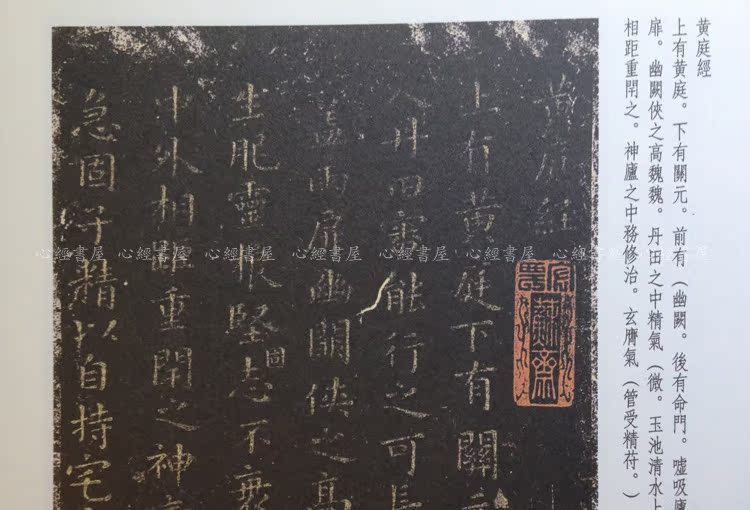 黄庭經
上有黄庭。下有關元。前有(幽闕。後有命門。嘘吸廬
扉。幽闕俠之高魏魏。丹田之中精氣(微。玉池清水上
相距重閉之。神廬之中務修治。玄膺氣(管受精苻。)
黄庭經
上有黄庭下有關
能行之可長
扉幽關俠之高
生肥靈根堅志不衰
固
中外相距重閉之神
急固子精以自持宅
心經書屋 心經書屋 心經書屋 心經書屋 心經書屋 心經書屋 心經書屋 心經書屋